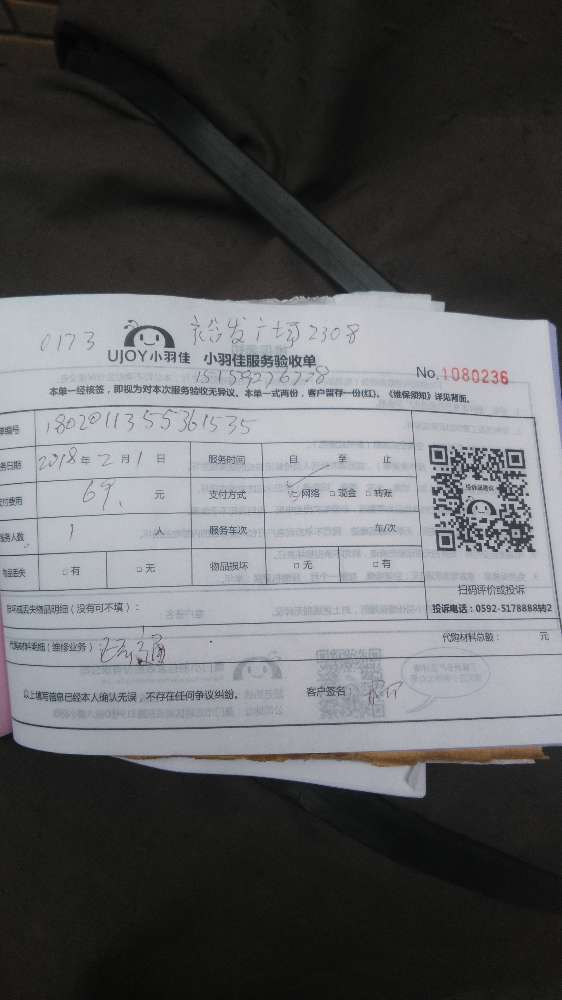 0173 裕发广场2308
UJOY小羽佳 小羽佳服务验收单
No.1080236
15159276728
本单一经核签，即视为对本次服务验收无异议。本单一式两份，客户留存一份(红)。《维保须知》详见背面。
单编号 18020113555361535
务日期 2018年2月1日 服务时间 自 至 止
付费用 69. 元 支付方式 ☑网络 □现金 □转账
服务人数 1 人 服务车次 车/次
物品丢失 □有 □无 物品损坏 □无 □有
扫码评价或投诉
投诉电话：0592-5178888转2
损坏或丢失物品明细（没有可不填）：
代购材料明细（维修业务） 代购材料总额： 元
以上填写信息已经本人确认无误，不存在任何争议纠纷。 客户签名：